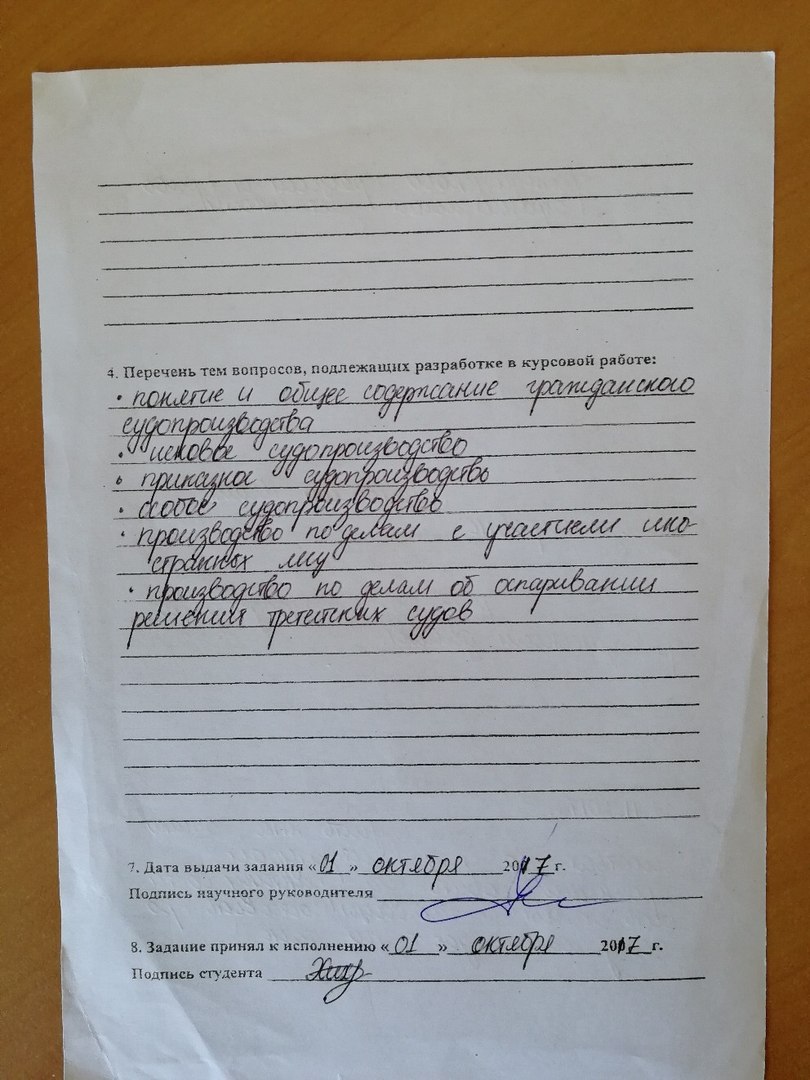 4. Перечень тем вопросов, подлежащих разработке в курсовой работе:
• понятие и общее содержание гражданского
судопроизводства
• исковое судопроизводство
• приказное судопроизводство
• особое судопроизводство
• производство по делам с участием ино-
странных лиц
• производство по делам об оспаривании
решения третейских судов
7. Дата выдачи задания «01» октября 2017 г.
Подпись научного руководителя
8. Задание принял к исполнению «01» октября 2017 г.
Подпись студента